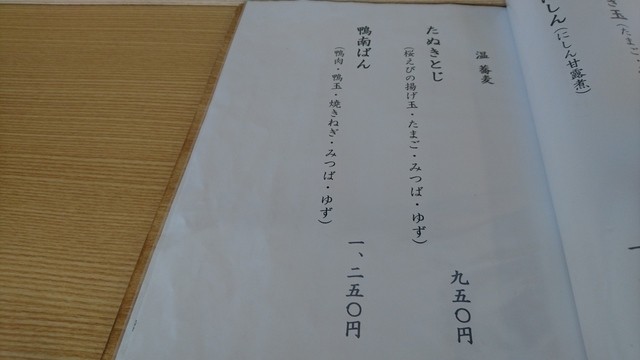 しん
(にしん甘露煮)
温蕎麦
たぬきとじ
九五〇円
(桜えびの揚げ玉・たまご・みつば・ゆず)
鴨南ばん
一、二五〇円
(鴨肉・鴨玉・焼きねぎ・みつば・ゆず)